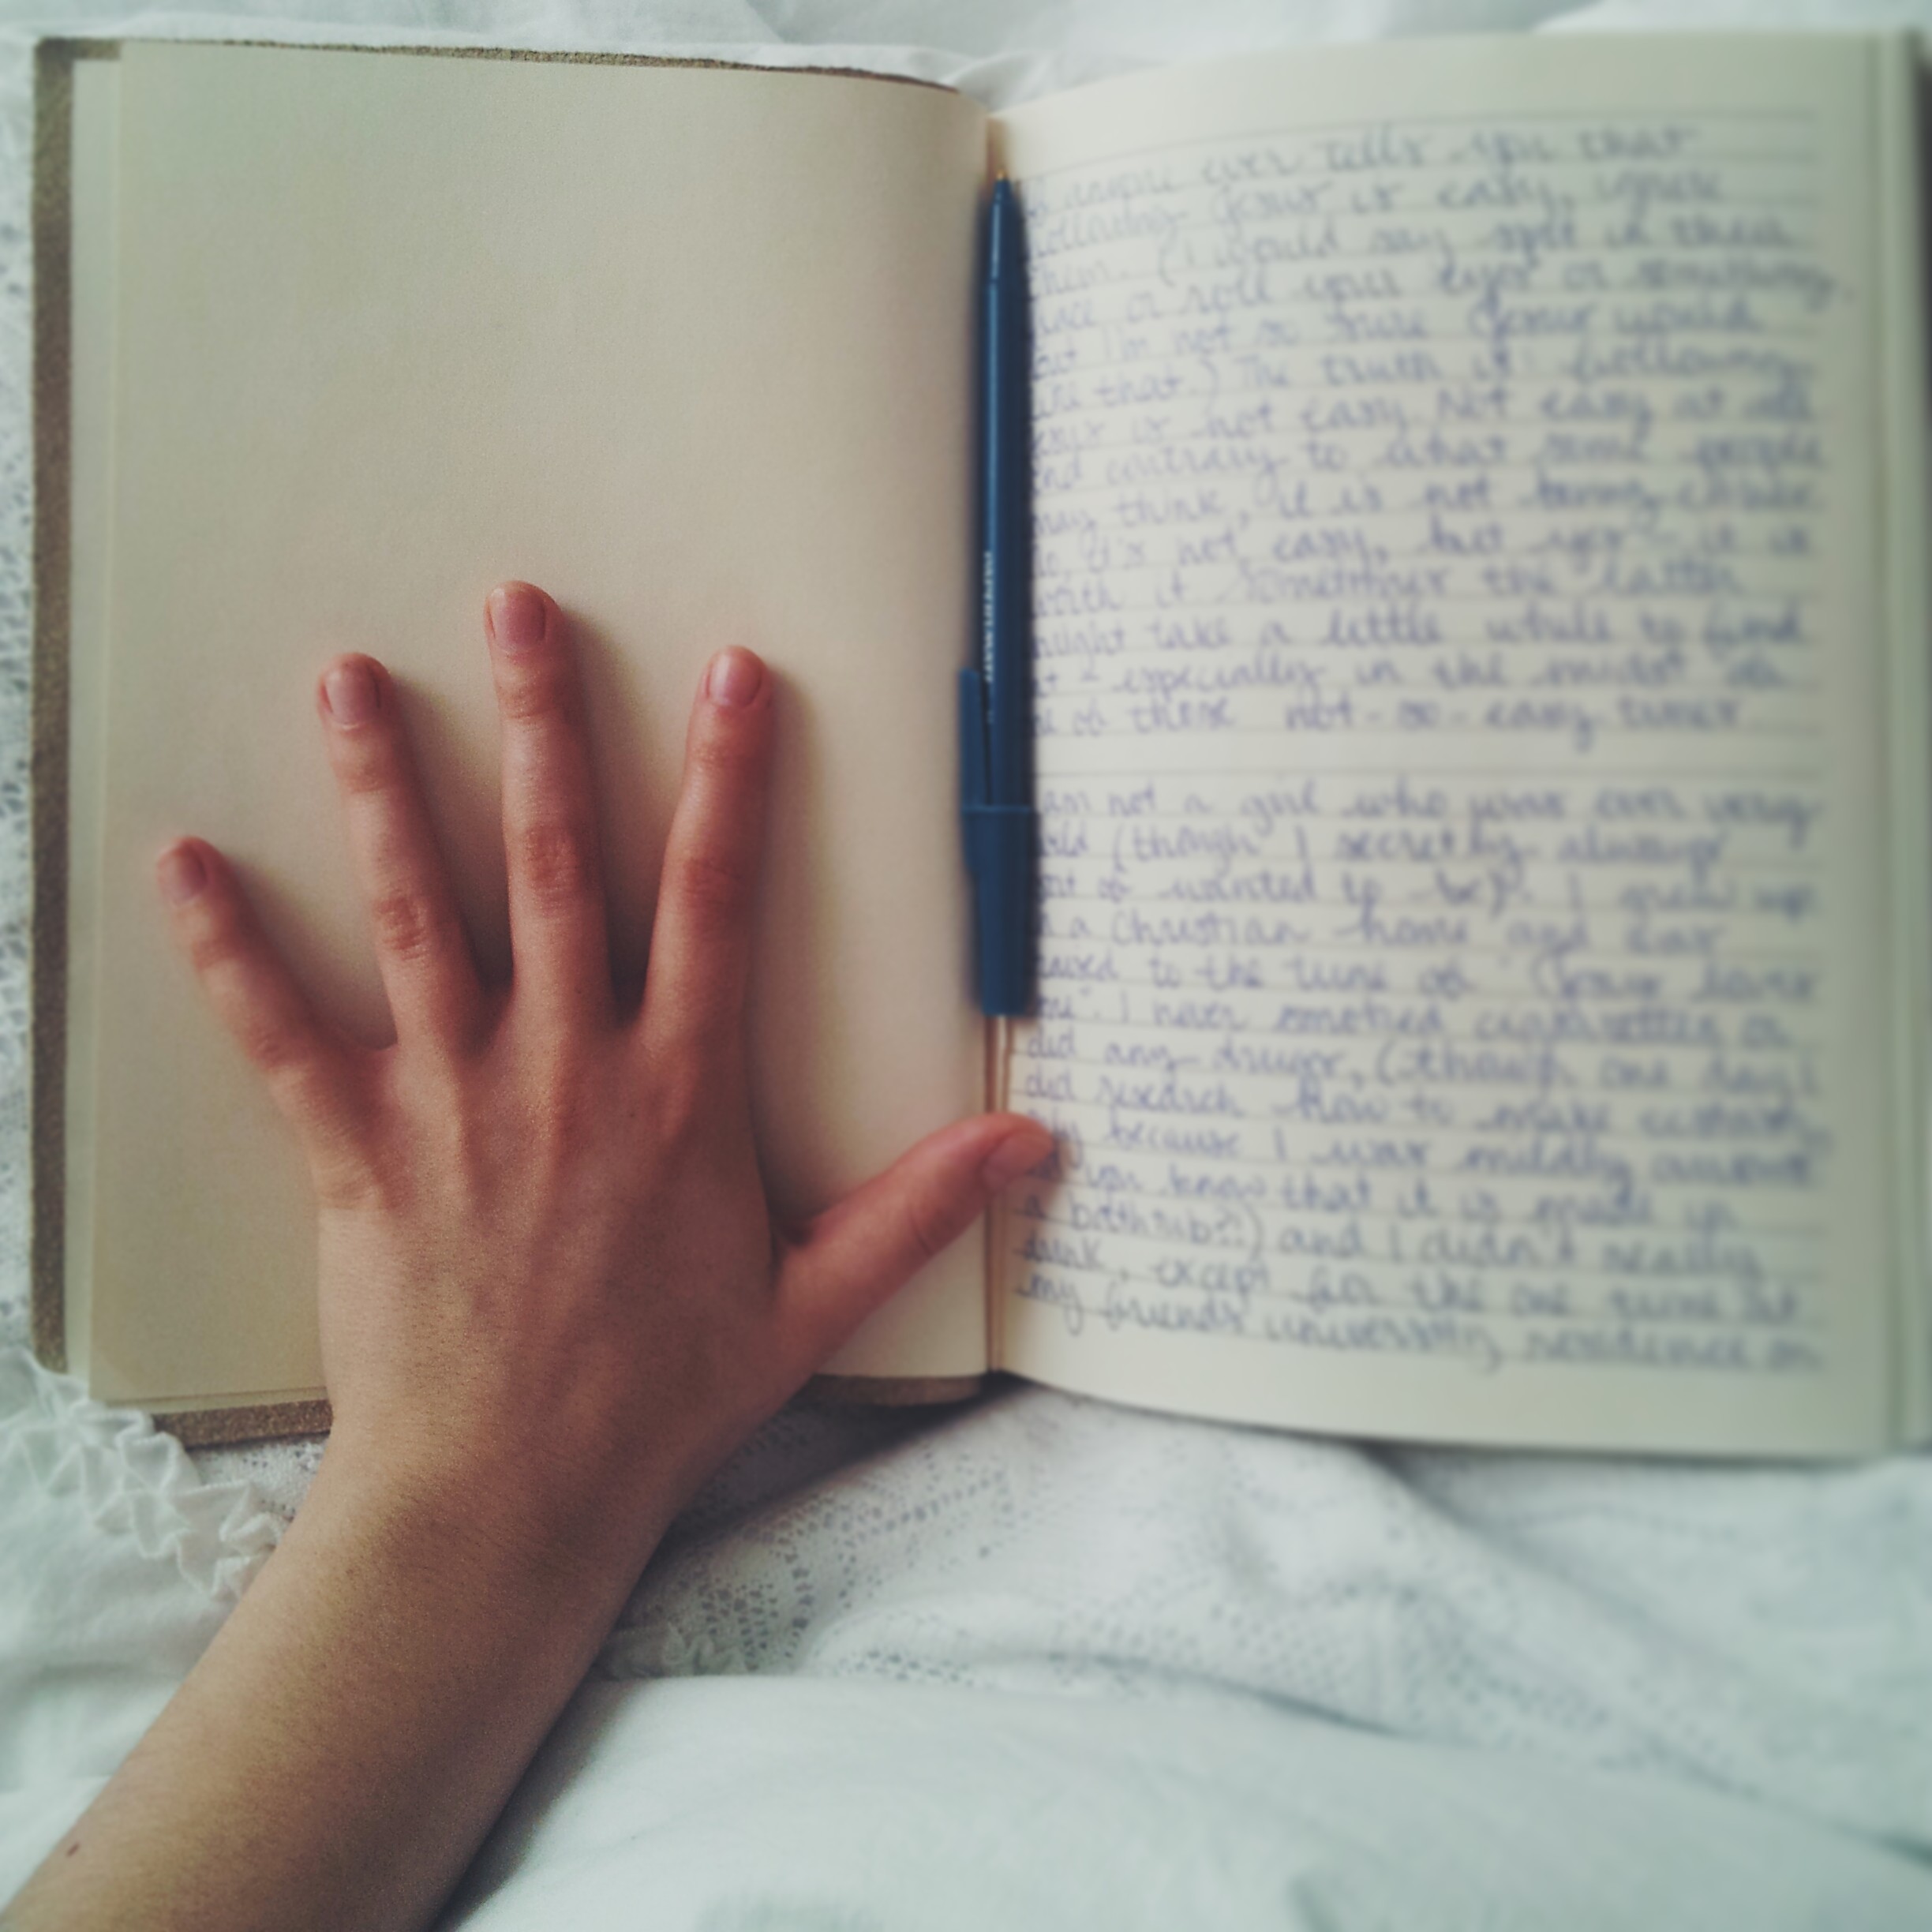 anyone ever tells you that
following Jesus is easy, ignore
them. (I would say spit in their
face or roll your eyes or something,
but I'm not so sure Jesus would
like that.) The truth is: following
Jesus is not easy. Not easy at all
and contrary to what some people
may think, it is not being
So it's not easy, but yes - it is
worth it. Sometimes the latter
might take a little while to find
it - especially in the midst of
of those not-so-easy times
am not a girl who was ever very
(though I secretly always
sort of wanted to be). I grew up
in a Christian home and was
to the tune of "Jesus loves
me". I never smoked cigarettes or
did any drugs, (though one day I
did research how to make ecstasy
because I was mildly
you know that it is made in
a bathtub?!) and I didn't really
drink, except for the one time at
my friend's university residence on